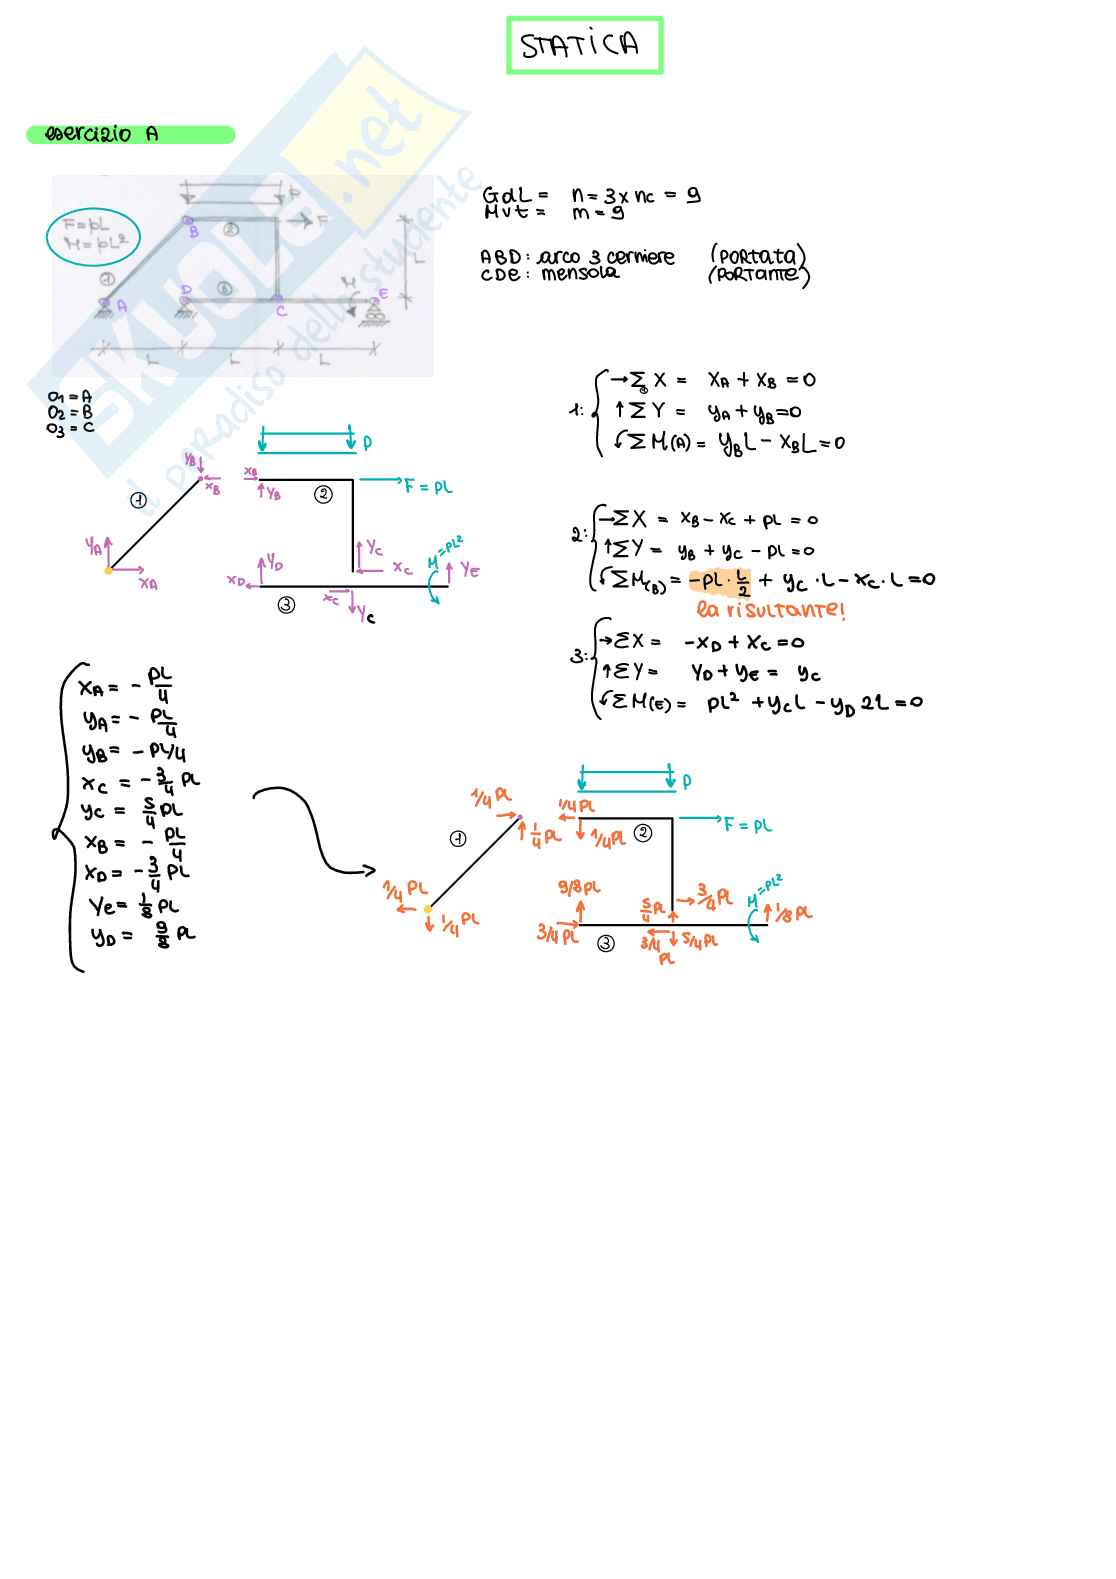 STATICA
esercizio A
F=pL
M=pL²
P
F
B
②
L
①
A
D
③
C
M
E
L
L
L
SKUOLA.net
il paradiso dello studente
GdL = n=3×nc = 9
Mvt = m=9
ABD: arco 3 cerniere (PORTATA)
CDE: mensola (PORTANTE)
O1 = A
O2 = B
O3 = C
1: →ΣX = XA + XB = 0
↑ΣY = YA + YB = 0
ΣM(A) = YBL − XBL = 0
YB
XB
①
YA
XA
P
XB
YB
②
F = pL
YC
XC
M=pL²
YE
YD
XD
③
XC
YC
2: →ΣX = XB − XC + pL = 0
↑ΣY = YB + YC − pL = 0
ΣM(B) = −pL · L/2 + YC · L − XC · L = 0
la risultante!
3: →ΣX = −XD + XC = 0
↑ΣY = YD + YE = YC
ΣM(E) = pL² + YCL − YD 2L = 0
XA = − pL/4
YA = − pL/4
YB = − pL/4
XC = − 3/4 pL
YC = 5/4 pL
XB = − pL/4
XD = − 3/4 pL
Ye = 1/8 pL
YD = 9/8 pL
1/4 pL
1/4 pL
①
1/4 pL
1/4 pL
P
1/4 pL
1/4 pL
②
F = pL
3/4 pL
5/4 pL
M=pL²
1/8 pL
9/8 pL
3/4 pL
③
3/4 pL
5/4 pL